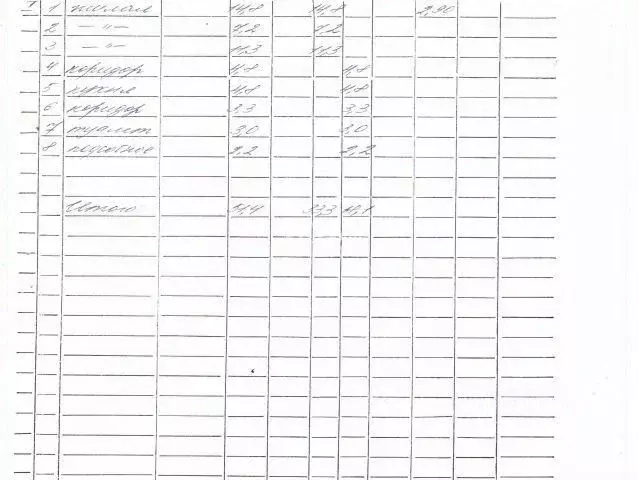 I 1 жилая 14,8 14,8 2,90
2 —"— 7,2 7,2
3 —"— 11,3 11,3
4 коридор 4,8 4,8
5 кухня 4,8 4,8
6 коридор 3,3 3,3
7 туалет 3,0 3,0
8 подсобное 2,2 2,2
Итого 51,4 33,3 18,1